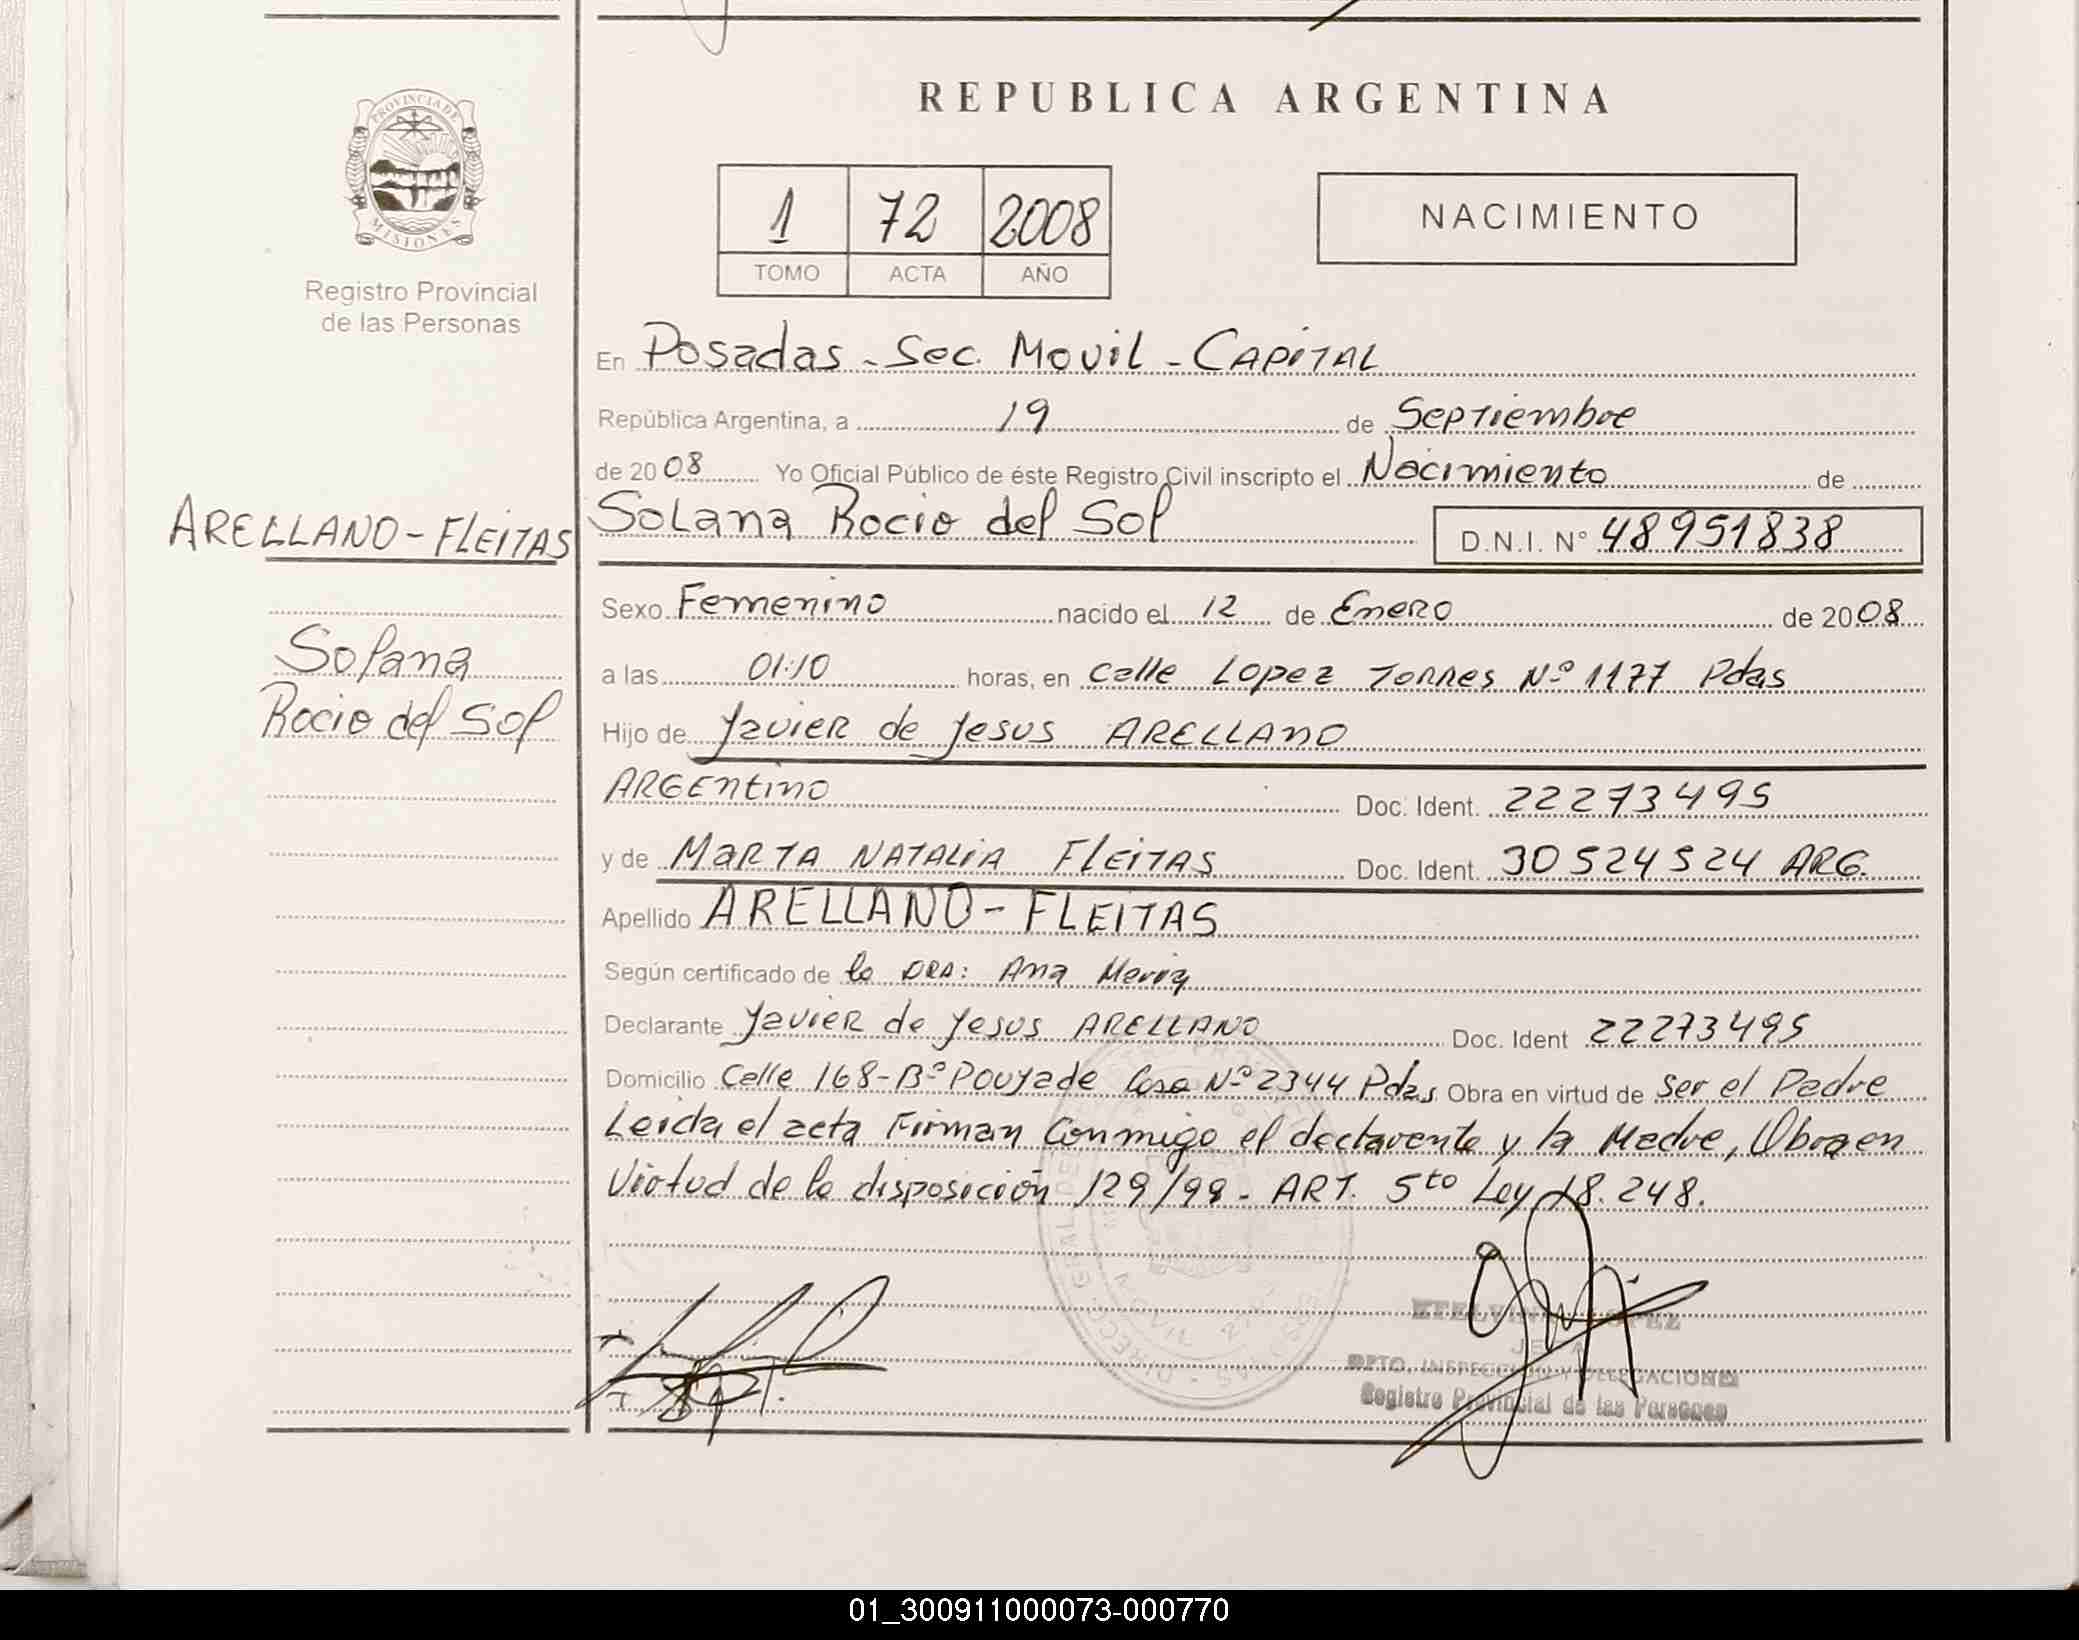 REPUBLICA ARGENTINA
PROVINCIA DE
MISIONES
Registro Provincial
de las Personas
1 72 2008
TOMO ACTA AÑO
NACIMIENTO
En Posadas - Sec. Movil - CAPITAL
República Argentina, a 19 de Septiembre
de 2008 Yo Oficial Público de éste Registro Civil inscripto el Nacimiento de
ARELLANO - FLEITAS
Solana Rocio del Sol D.N.I. N° 48951838
Sexo Femenino nacido el 12 de Enero de 2008
Solana
Rocio del Sol
a las 01:10 horas, en Calle Lopez Torres Nº 1177 Pdas
Hijo de Javier de Jesus ARELLANO
ARGEntino Doc. Ident. 22273495
y de MARTA NATALIA FLEITAS Doc. Ident. 30524524 ARG.
Apellido ARELLANO - FLEITAS
Según certificado de la DRA: Ana
Declarante Javier de Jesus ARELLANO Doc. Ident 22273495
Domicilio Calle 168 - Bº Pouyade Casa Nº 2344 Pdas Obra en virtud de ser el Padre
Leida el acta Firman Conmigo el declarante y la Madre, Obra en
Virtud de la disposición 129/98 - ART. 5to Ley 18.248.
LOPEZ
JEFA
DPTO. INSPECCION Y DELEGACIONES
Registro Provincial de las Personas
01_300911000073-000770